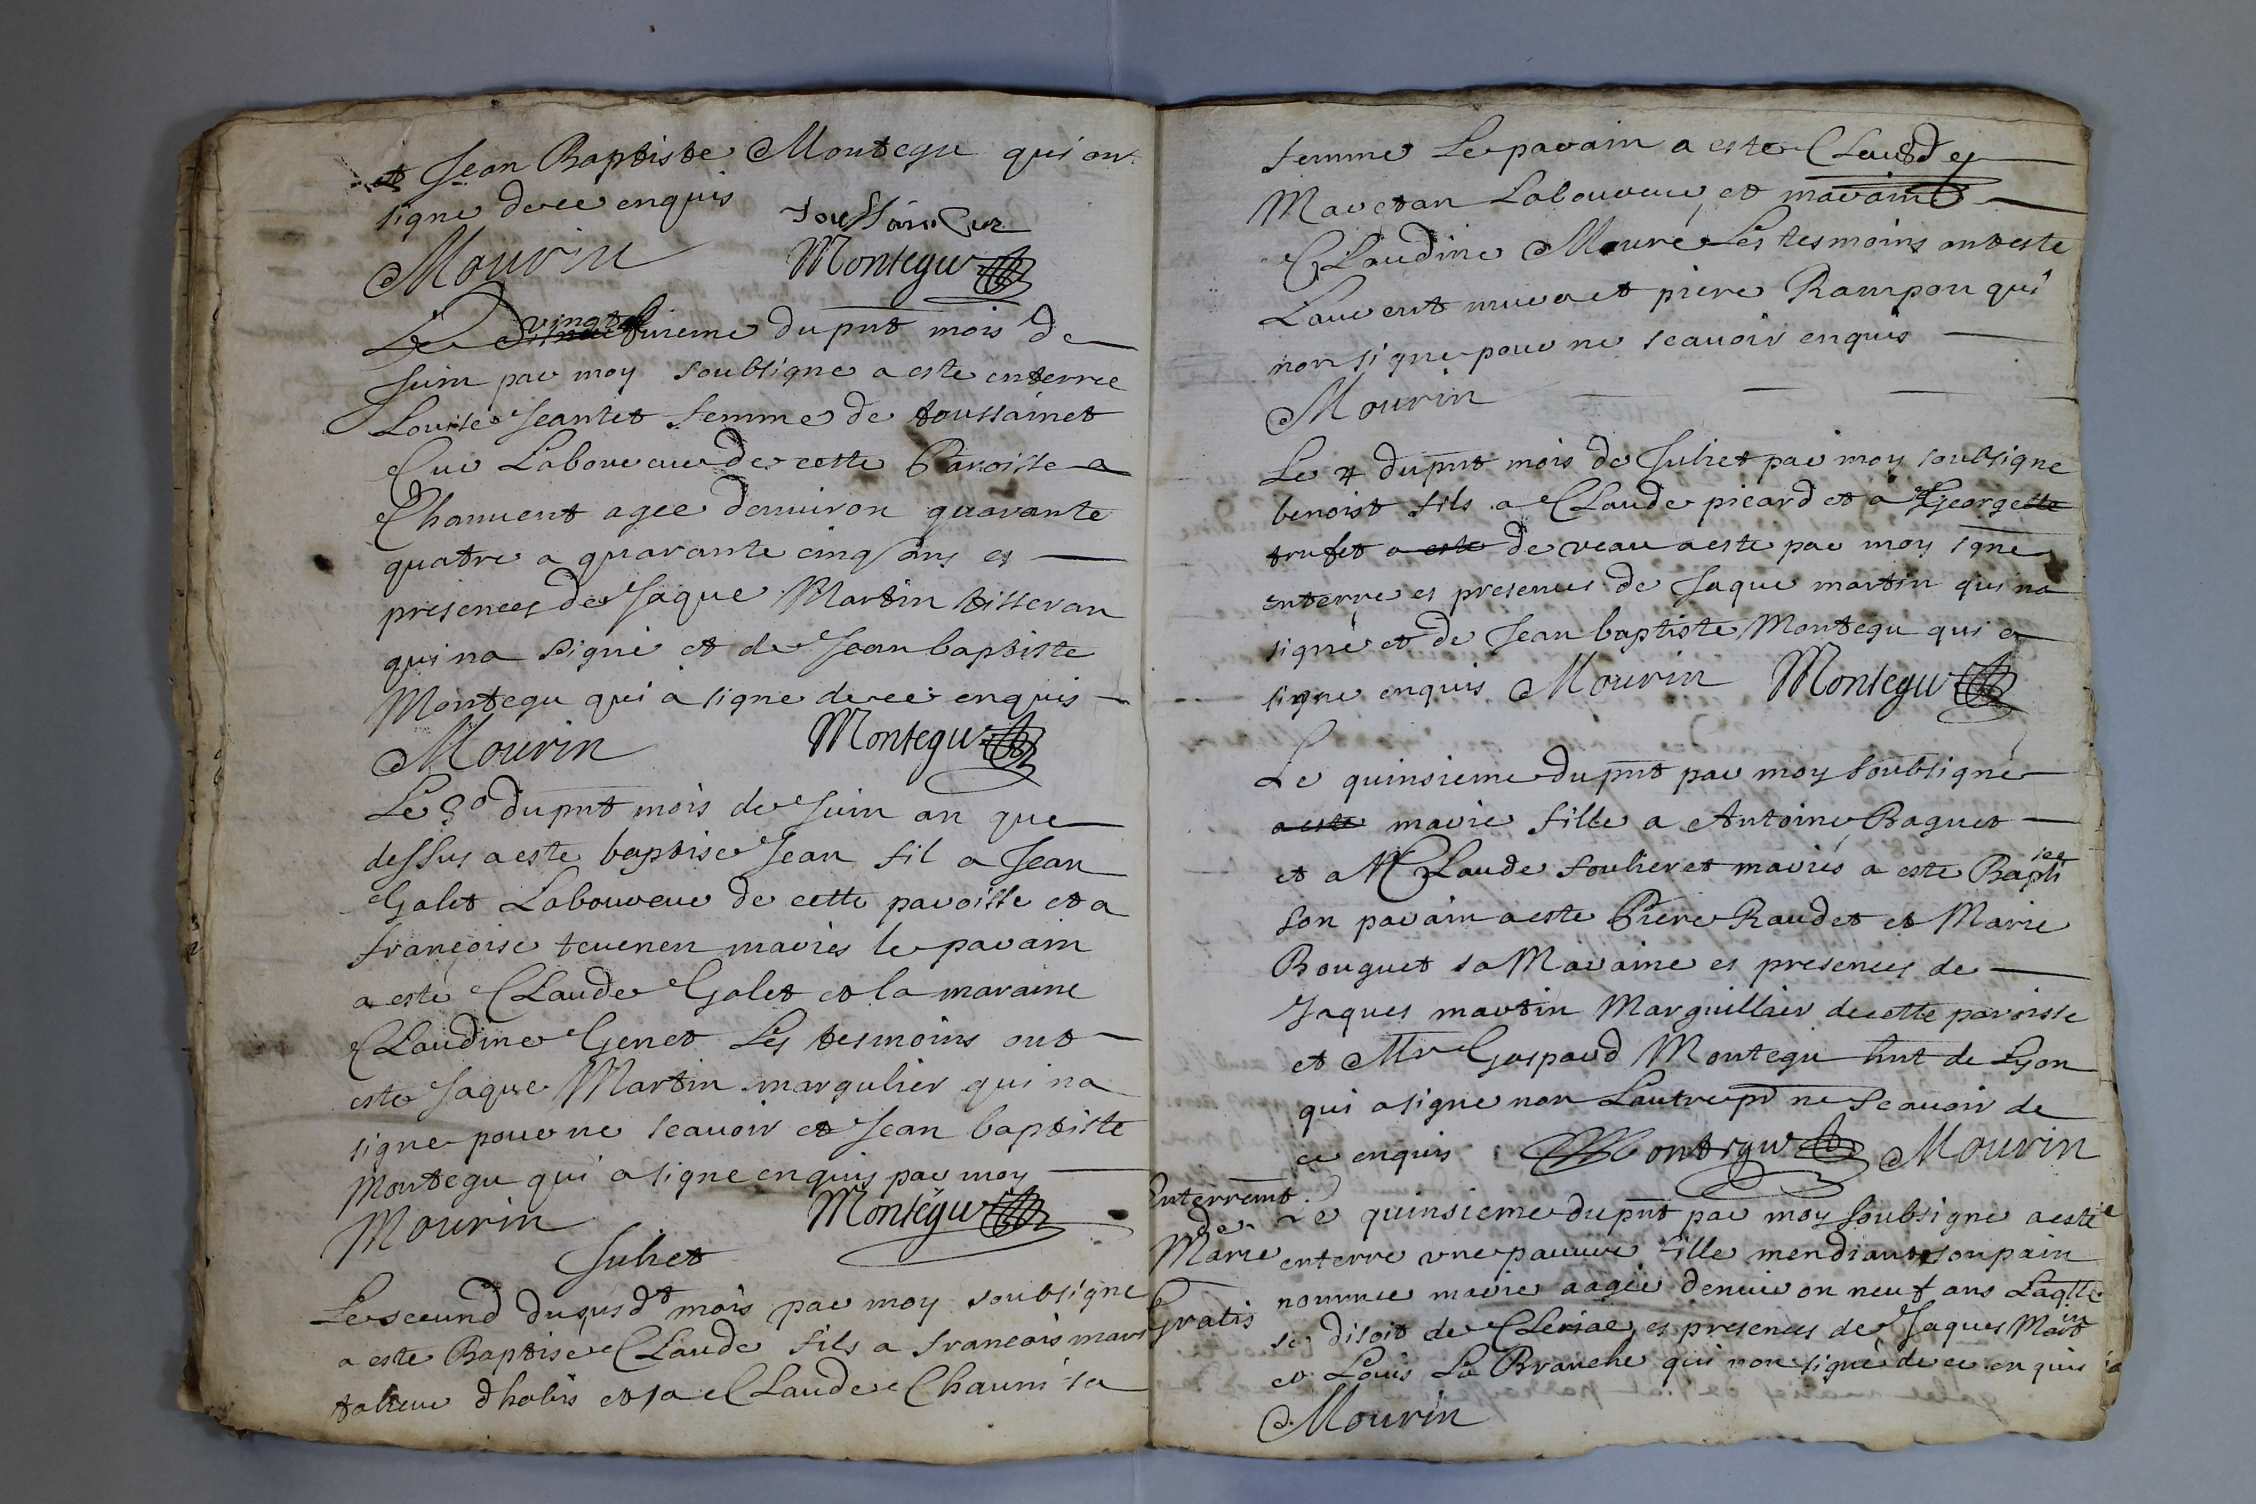 et Jean Baptiste Montegu qui ont
signe dece enquis
toussain Cur
Mourin Montegu
Le vingt huiteme du pnt mois de
Juin par moy soubsigne a este enterree
Louise Jeantet femme de toussainct
Cur Laboureur de ceste Paroisse a
Chanuent agee denuiron quarante
quatre a quarante cinq ans es
presences de Jaque Martin tisseran
qui na signé et de Jean baptiste
Montegu qui à signe dece enquis
Mourin Montegu
Le 30 du pnt mois de Juin an que
dessus a este baptise Jean fil a Jean
Galet Laboureur de cette paroisse et a
françoise teuenen maries le parain
a esté Claude Galet et la maraine
Claudine Genet Les tesmoins ont
este Jaque Martin margulier qui na
signe pour ne scauoir et Jean baptiste
Montegu qui a signe enquis par moy
Mourin Montegu
Juliet
Le second du susdt mois par moy soubsigne
a este Baptise Claude fils a francois
talieur dhabis et a Claude sa
femme Le parain a este Claude
Laboureur et maraine
Claudine Mouré Les tesmoins ont este
Laurent et piere Rampon qui
non signe pour ne scauoir enquis
Mourin
Le 4 du pnt mois de Juliet par moy soubsigne
benoist fils a Claude picard et a George
trufet a este de veau a este par moy signe
enterre es presences de Jaque martin qui na
signé et de Jean baptiste Montegu qui a
signe enquis Mourin Montegu
Le quinsieme du pnt par moy soubsigné
a este marie fille a Antoine Baguet
et a Claude Soulieret mariés a este Baptisee
son parain a este Piere Raudet et Marie
Bouguet sa Maraine es presences de
Jaques martin Marguillier de cette paroisse
et Mr Gaspard Montegu hnt de Lyon
qui a signe non Lautre pr ne Scauoir de
ce enquis Montegu Mourin
Enterremt
de
Marie
Gratis
Le quinsieme du pnt par moy soubsigne a esté
enterre vne pauure fille mendiant son pain
nommee marie aagée denuiron neuf ans Laqlle
se disoit de es presences de Jaques Martin
et Louis La Branche qui non signé de ce enquis
Mourin